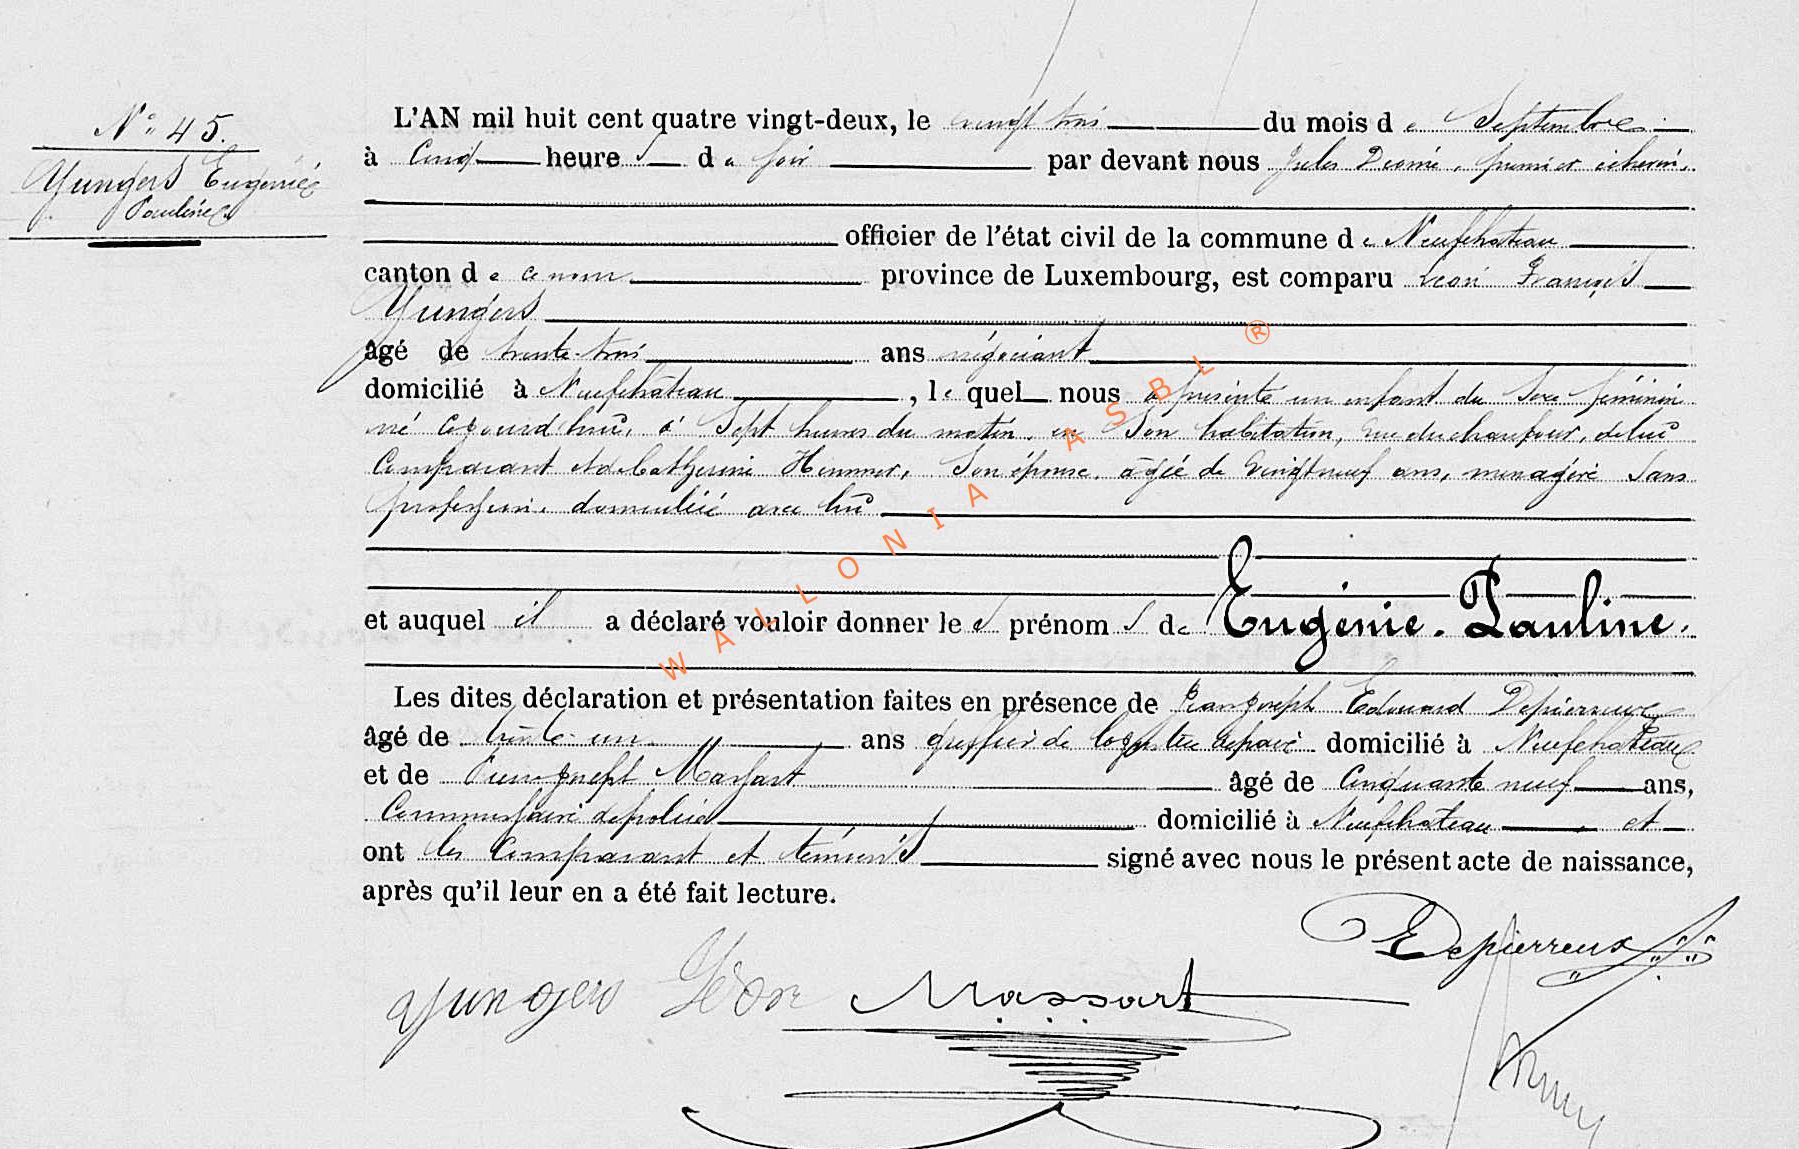 N° 45.
Yungers Eugénie
Pauline
L'AN mil huit cent quatre vingt-deux, le vingt trois du mois de Septembre
à cinq heures du soir par devant nous Jules, premier échevin,
officier de l'état civil de la commune de Neufchateau
canton de ce nom province de Luxembourg, est comparu Léon François
Yungers
âgé de trente-trois ans négociant
domicilié à Neufchâteau, lequel nous a présenté un enfant du sexe féminin
né cejourd'hui, à sept heures du matin, en son habitation, rue du chaufour, de lui
comparant et de Catherine Hemmer, son épouse, âgée de vingt neuf ans, menagère sans
profession, domiciliée avec lui
et auquel il a déclaré vouloir donner les prénoms de Eugénie. Pauline.
Les dites déclaration et présentation faites en présence de Edouard Depierreux
âgé de trente-un ans greffier de la justice de paix domicilié à Neufchateau
et de Massart âgé de Cinquante neuf ans,
Commissaire de police domicilié à Neufchateau et
ont les Comparant et témoins signé avec nous le présent acte de naissance,
après qu'il leur en a été fait lecture.
Depierreux
Yungers Léon Massart
WALLONIA ASBL ®